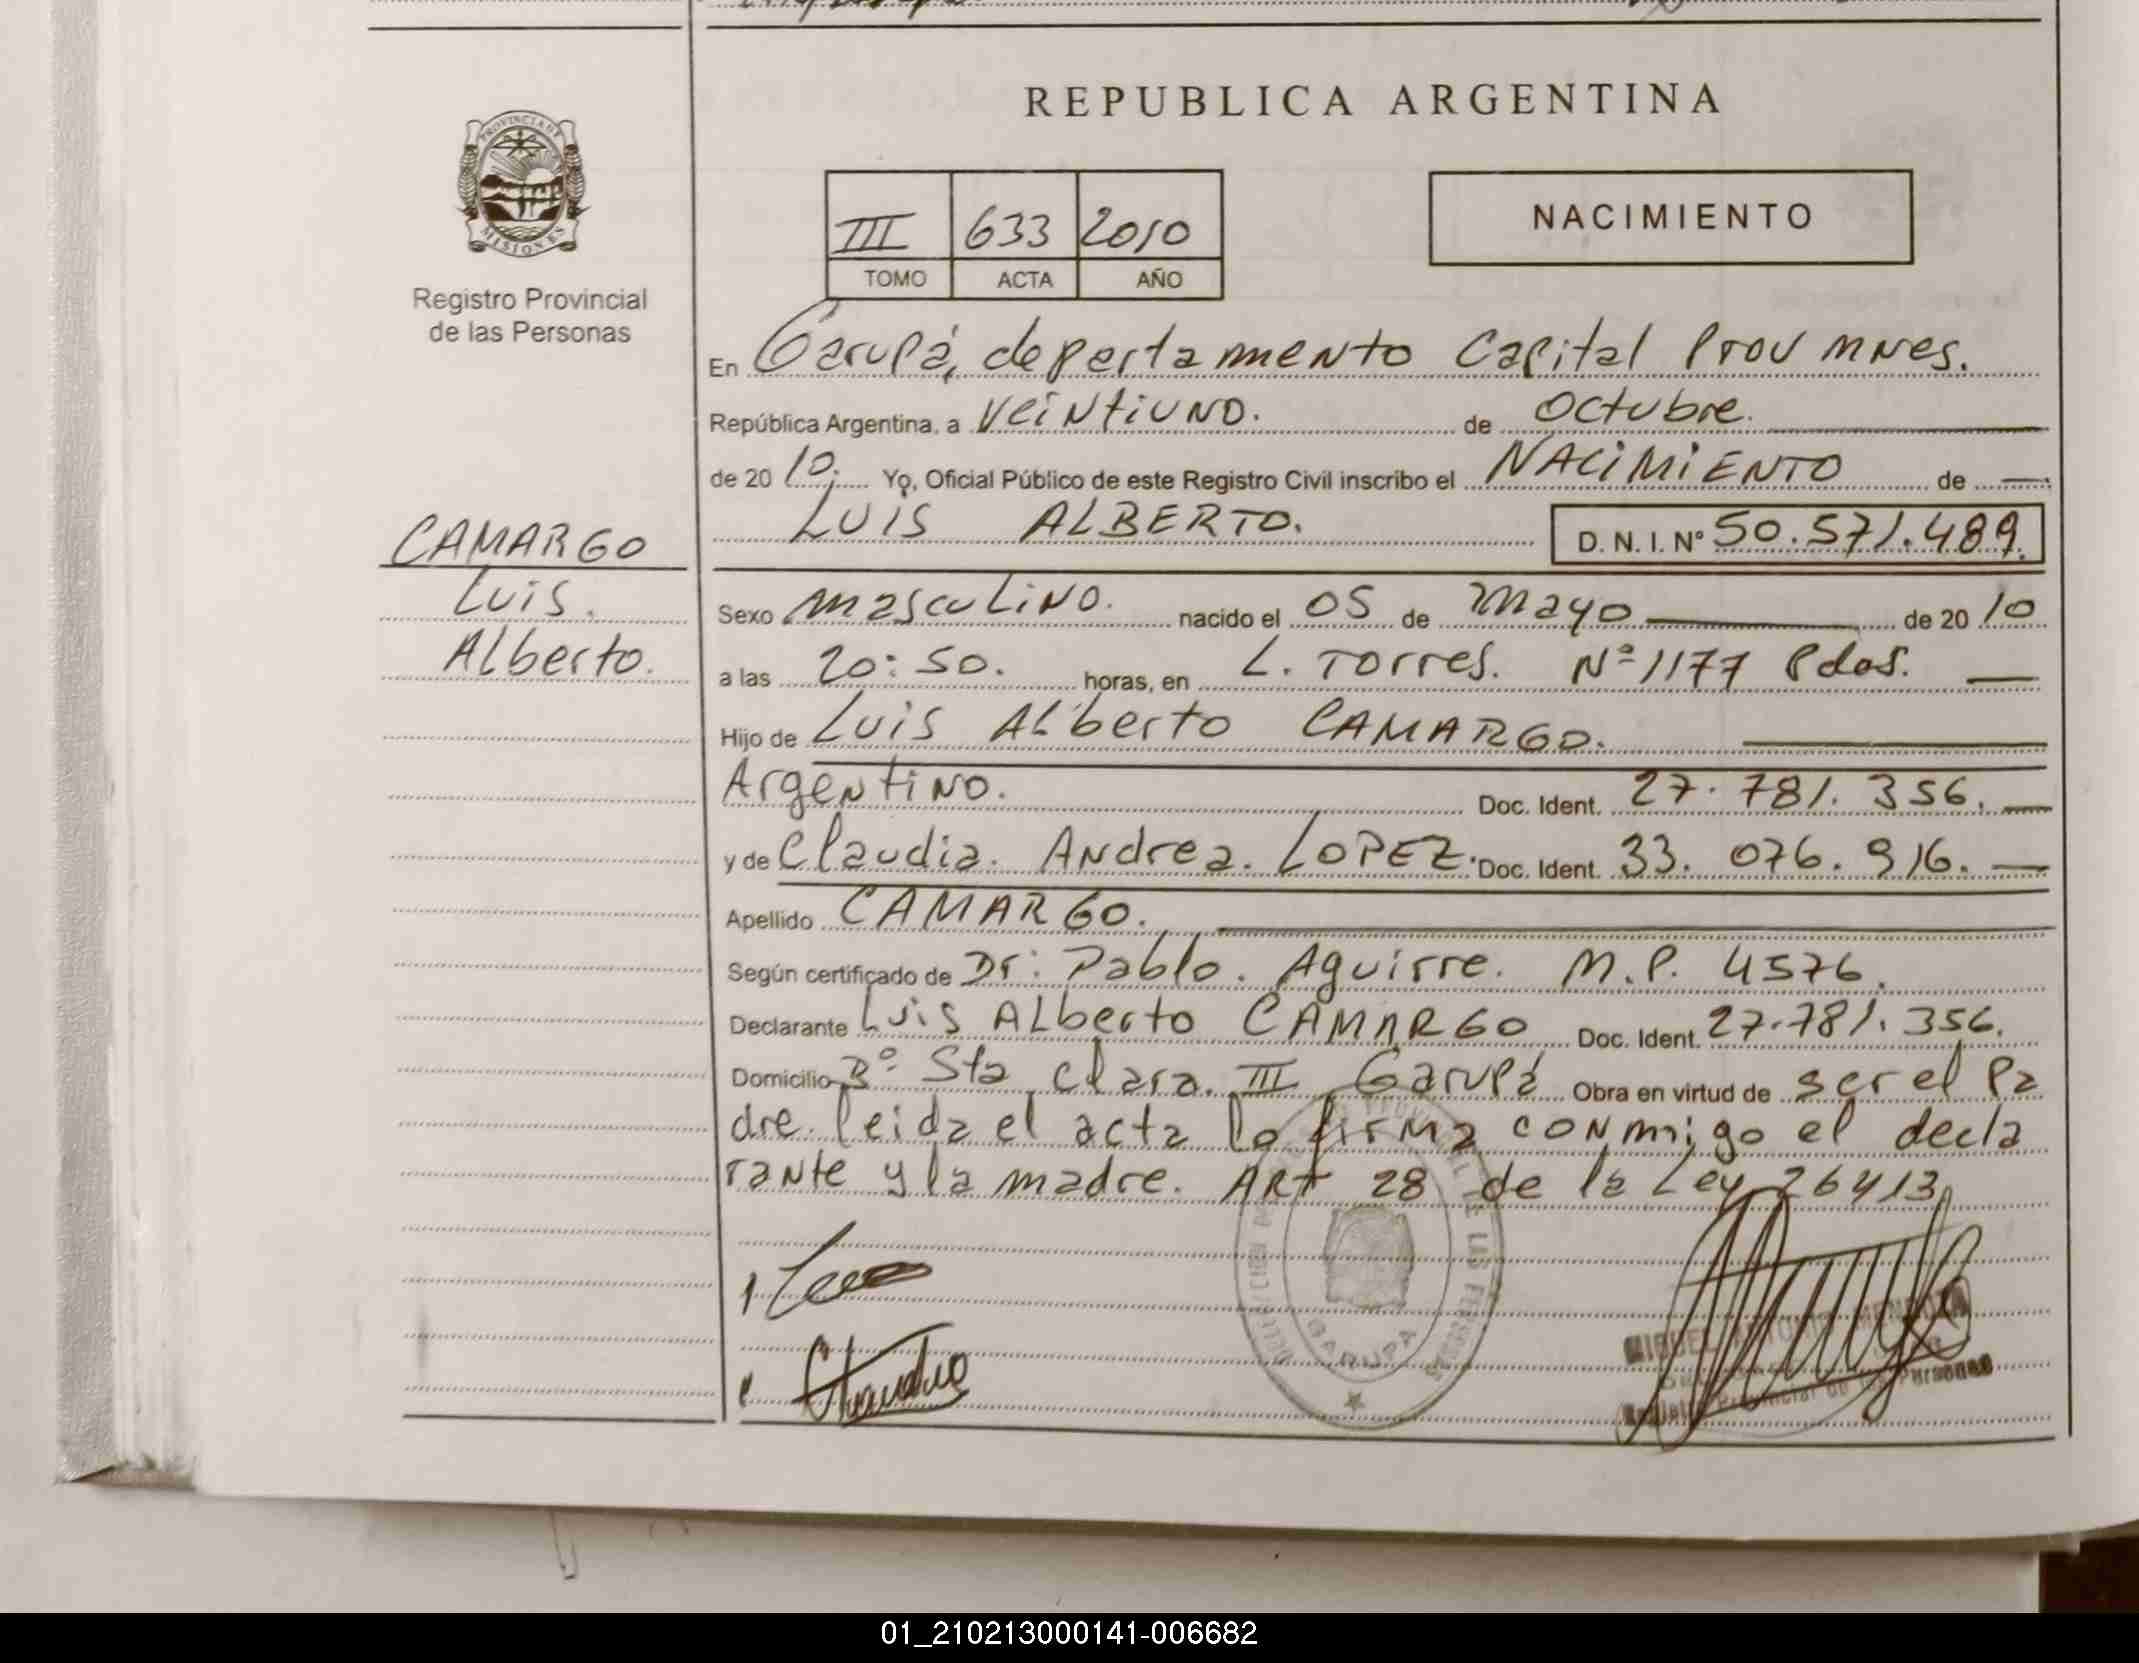 REPUBLICA ARGENTINA
PROVINCIA DE
MISIONES
Registro Provincial
de las Personas
III 633 2010
TOMO ACTA AÑO
NACIMIENTO
En Garupá, departamento Capital Prov mnes.
República Argentina, a veintiuno. de octubre.
de 2010. Yo, Oficial Público de este Registro Civil inscribo el NACIMIENTO de
LUIS ALBERTO. D. N. I. Nº 50.571.489.
CAMARGO
Luis.
Alberto.
Sexo masculino. nacido el 05 de mayo de 2010
a las 20:50. horas, en L. Torres. Nº 1177 Pdas.
Hijo de Luis Alberto CAMARGO.
Argentino. Doc. Ident. 27.781.356.
y de Claudia. Andrea. LOPEZ. Doc. Ident. 33.076.916.
Apellido CAMARGO.
Según certificado de Dr: Pablo. Aguirre. M.P. 4576.
Declarante Luis Alberto CAMARGO Doc. Ident. 27.781.356.
Domicilio Bº Sta Clara. III Garupá Obra en virtud de ser el Pa
dre. leida el acta la firma conmigo el decla
rante y la madre. ARt 28 de la Ley 26413
GARUPA
MIGUEL ANTONIO MENDOZA
Provincial de las Personas
01_210213000141-006682